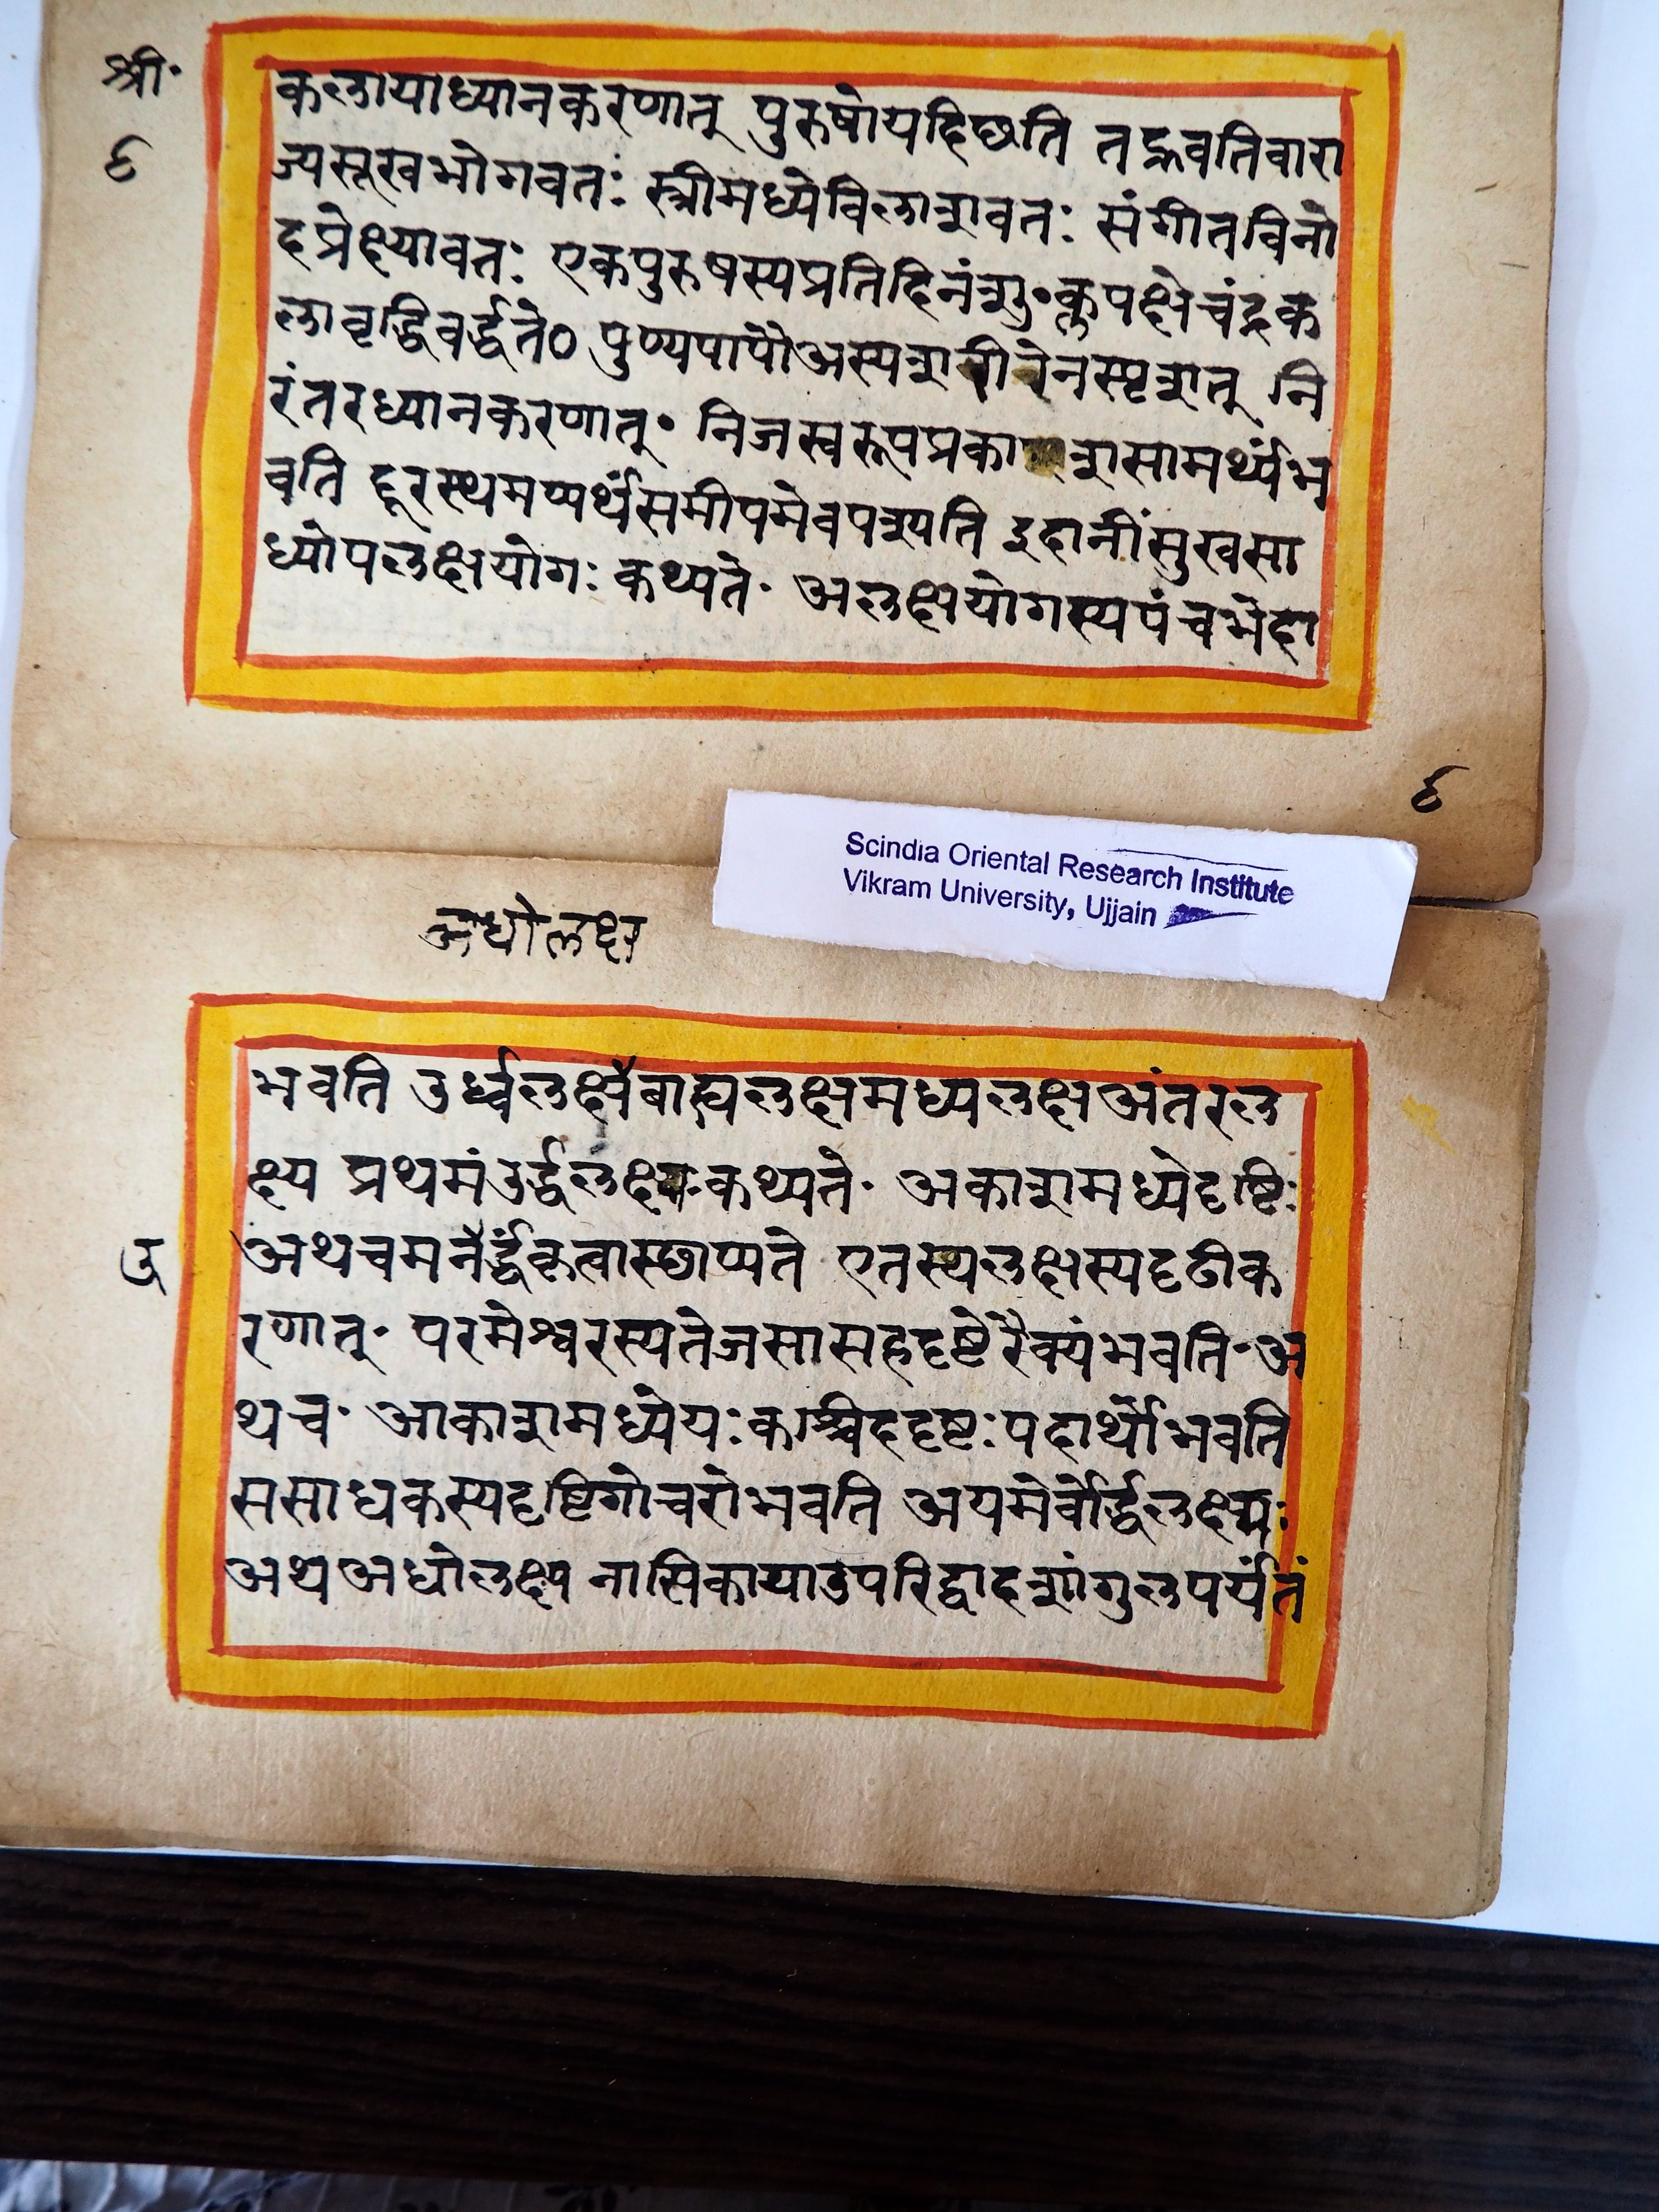 श्री·
६
कलायाध्यानकरणात् पुरुषोयदिछति तद्भवतिवारा
ज्यसूखभोगवतः स्त्रीमध्येविलाशवतः संगीतविनो
दप्रेक्ष्यावतः एकपुरुषस्यप्रतिदिनंशु·क्लपक्षेचंद्रक
लावृद्धिवर्द्धते० पुण्यपापौअस्यशरीरेनस्पृशत् नि
रंतरध्यानकरणात्· निजस्वरूपप्रकाशसामर्थ्यंभ
वति दूरस्थमप्यर्थंसमीपमेवपश्यति इदानींसुखसा
ध्योपलक्षयोगः कथ्यते· अलक्ष्ययोगस्यपंचभेदा
६
Scindia Oriental Research Institute
Vikram University, Ujjain
अधोलक्ष
भवति उर्ध्वलक्ष्यैबाह्यलक्षमध्यलक्षअंतरल
क्ष्य प्रथमंउर्द्धलक्ष्यकथ्यते· अकाशमध्येदृष्टिः
उ
अथचमनेर्द्धंकृत्वास्छाप्यते एतस्यलक्षस्यदृढीक
रणात्· परमेश्वरस्यतेजसासहदृष्टेरैक्यंभवति·अ
थच· आकाशमध्येयःकाश्चिददृष्टःपदार्थोभवति
ससाधकस्यदृष्टिगोचरोभवति अयमेवोर्द्धलक्ष्यः
अथअधोलक्ष्य नासिकायाउपरिद्वादशांगुलपर्यंतं